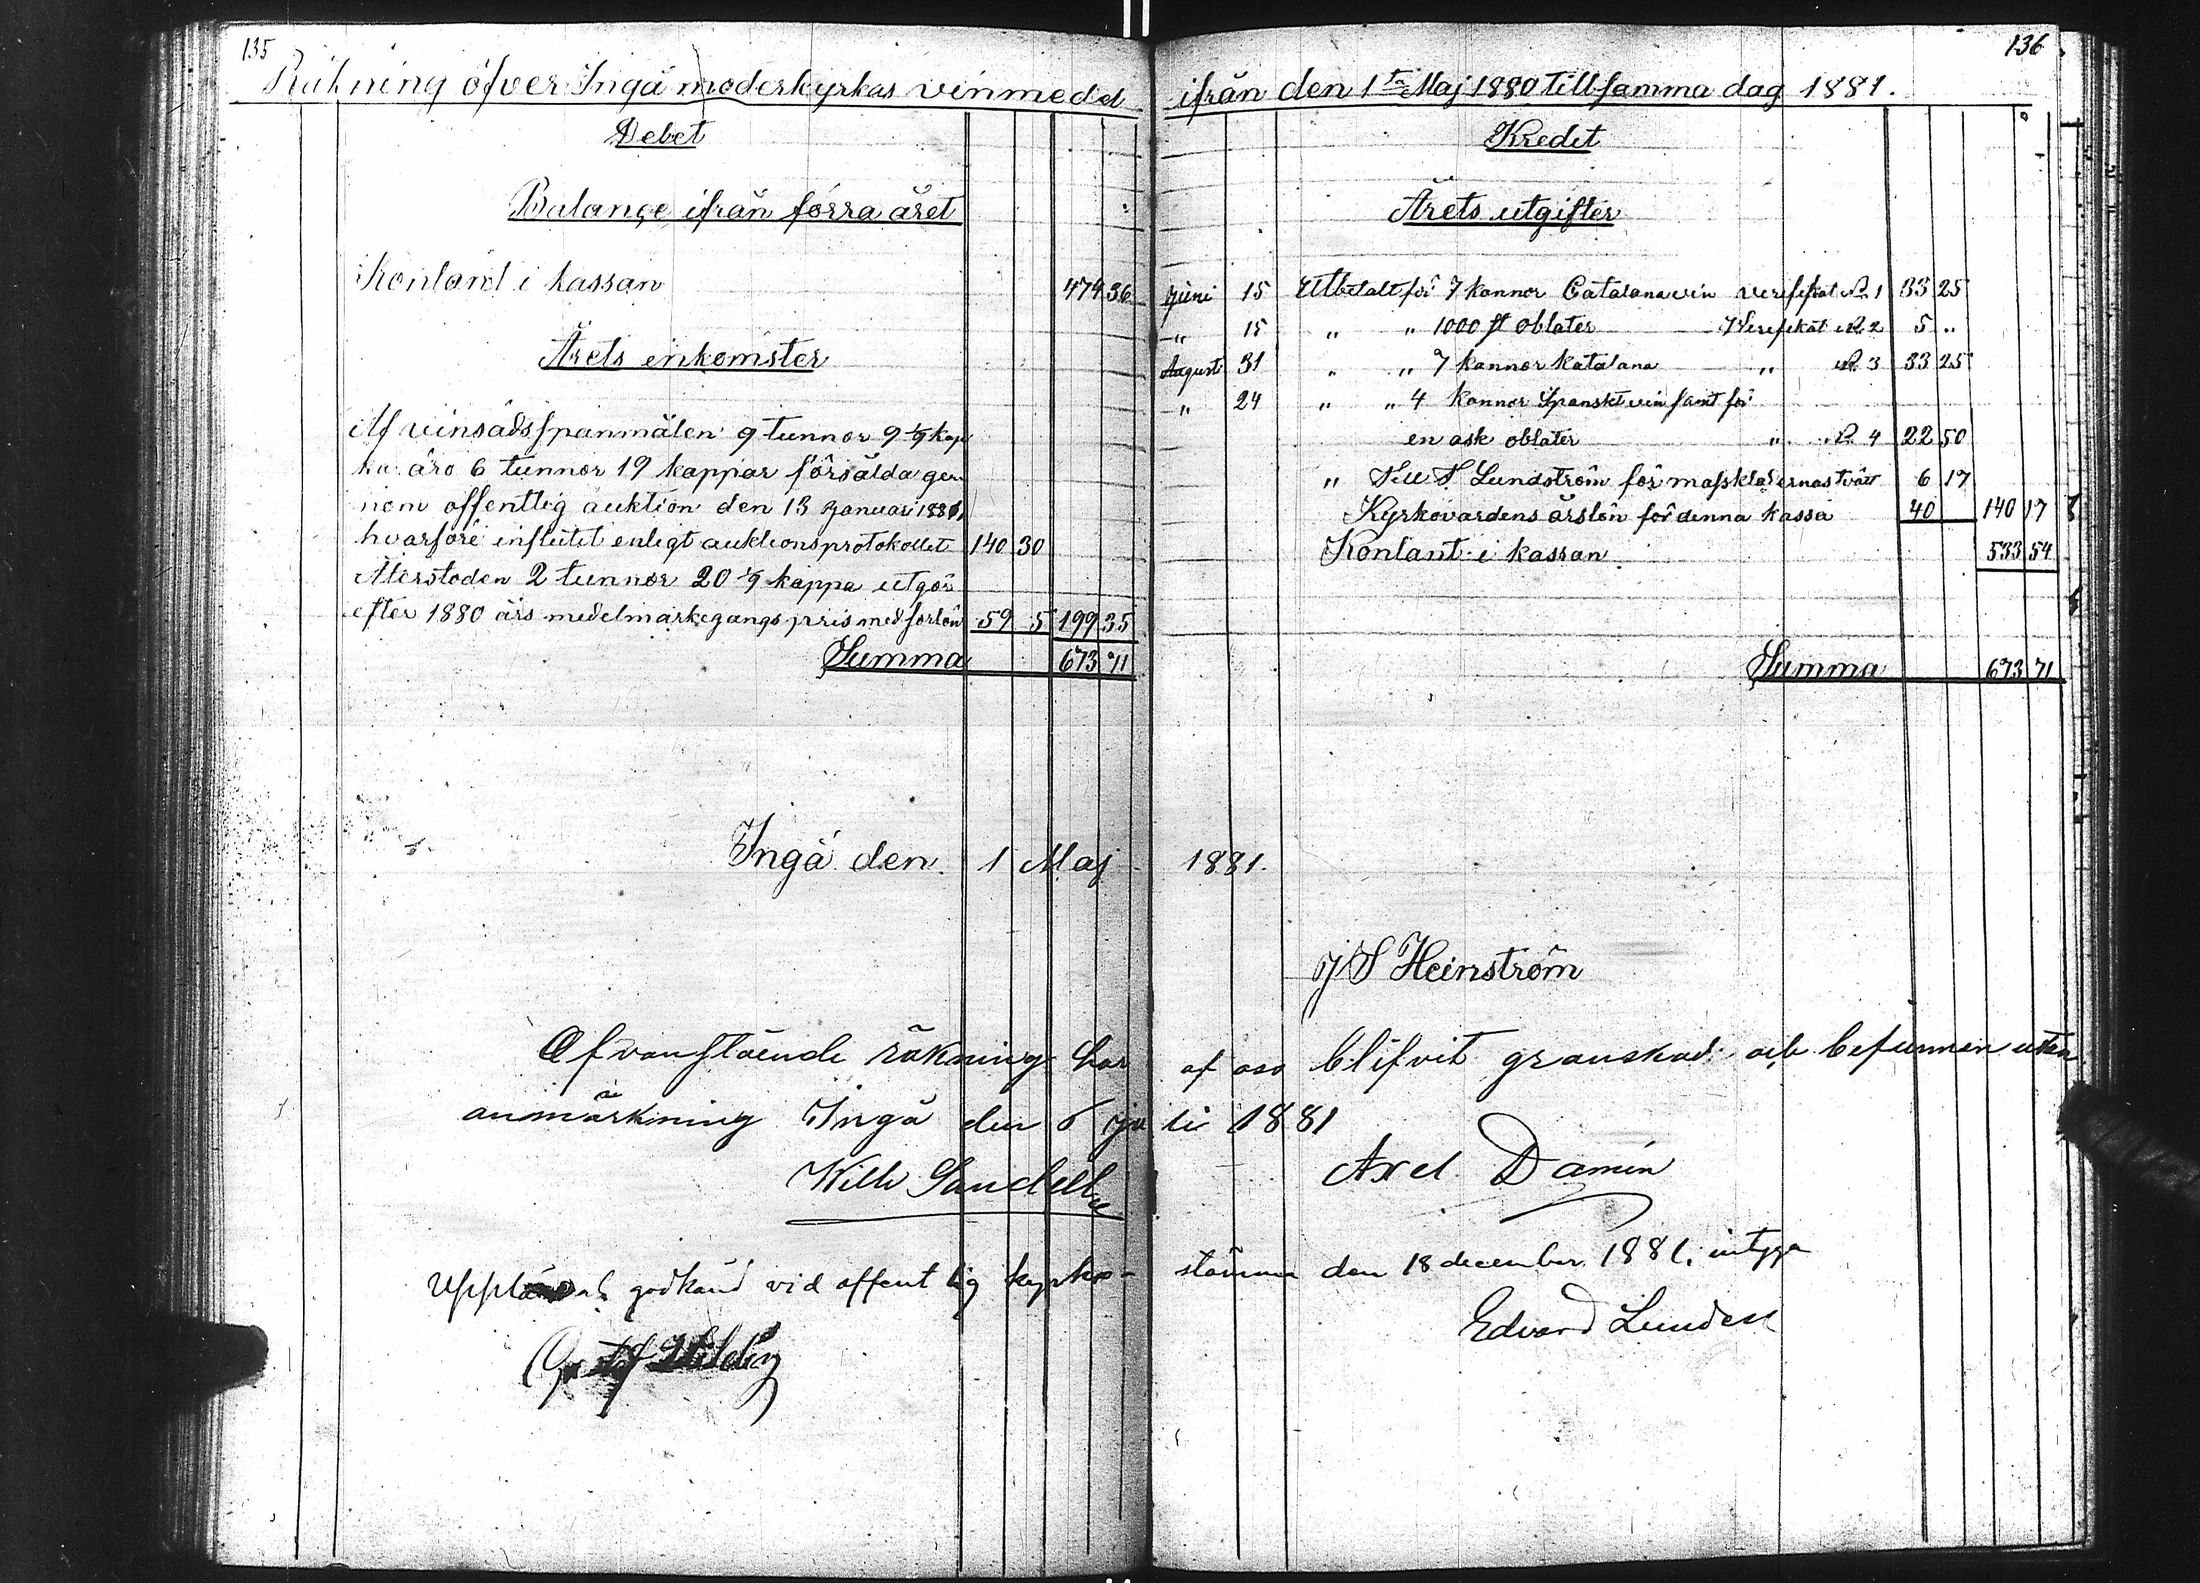 135
Räkning öfver Ingå moderkyrkas vinmedel
Debet
Balançe ifrån förra året
Kontant i kassan 474 36
Årets inkomster
Af vinsädsspanmålen 9 tunnor 9 1/9 kap
ha äro 6 tunnor 19 kappar försålda ge
nom offentlig auktion den 13 Januari 1881,
hvarföre influtit enligt auktionsprotokollet 140 30
Återstoden 2 tunnor 20 1/9 kappa utgör
efter 1880 års medelmarkegangs pris med forlön 59 5 199 35
Summa 673 71
Ingå den 1 Maj 1881.
136
ifrån den 1sta Maj 1880 till samma dag 1881.
Kredit
Årets utgifter
Juni 15 Utbetalt för 7 kannor Catalanavin Verifikat No 1 33 25
" 15 " " 1000 st oblater Verifikat No 2 5 "
Augusti 31 " " 7 kannor Katalana " No 3 33 25
" 24 " " 4 kannor Spanskt vin samt för
en ask oblater " No 4 22 50
" Till S Lundström för masskladernas tvätt 6 17
Kyrkovärdens årslön för denna kassa 40 140 17
Kontant i kassan 533 54
Summa 673 71
J S Heinström
Ofvanstående räkning har af oss blifvit granskad och befunnen utan
anmärkning Ingå den 6 juli 1881
Wilh Sandell Axel Damén
och godkänd vid offentlig kyrko-stämma den 18 december 1881, intyga
Gustaf Edvard Lundell